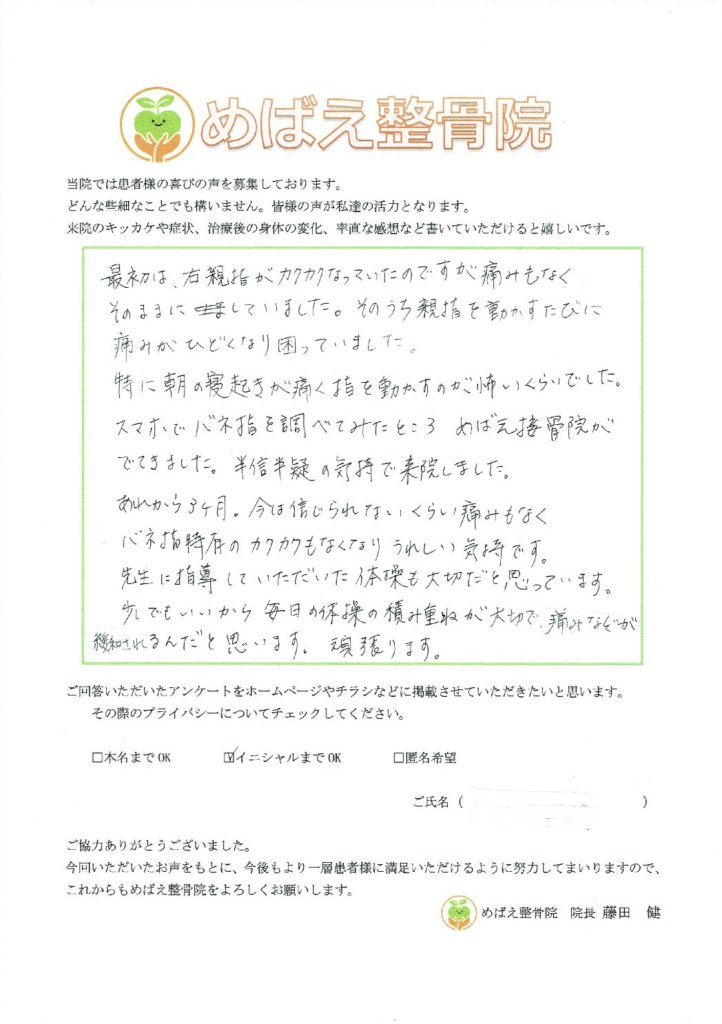 めばえ整骨院
当院では患者様の喜びの声を募集しております。
どんな些細なことでも構いません。皆様の声が私達の活力となります。
来院のキッカケや症状、治療後の身体の変化、率直な感想など書いていただけると嬉しいです。
最初は、右親指がカクカクなっていたのですが痛みもなく
そのままにしていました。そのうち親指を動かすたびに
痛みがひどくなり困っていました。
特に朝の寝起きが痛く指を動かすのが怖いくらいでした。
スマホでバネ指を調べてみたところ めばえ接骨院が
でてきました。半信半疑の気持で来院しました。
あれから3ヶ月。今は信じられないくらい痛みもなく
バネ指特有のカクカクもなくなりうれしい気持です。
先生に指導していただいた体操も大切だと思っています。
少しでもいいから毎日の体操の積み重ねが大切で、痛みなどが
緩和されるんだと思います。頑張ります。
ご回答いただいたアンケートをホームページやチラシなどに掲載させていただきたいと思います。
その際のプライバシーについてチェックしてください。
□本名までOK ☑イニシャルまでOK □匿名希望
ご氏名（ ）
ご協力ありがとうございました。
今回いただいたお声をもとに、今後もより一層患者様に満足いただけるように努力してまいりますので、
これからもめばえ整骨院をよろしくお願いします。
めばえ整骨院 院長 藤田 健